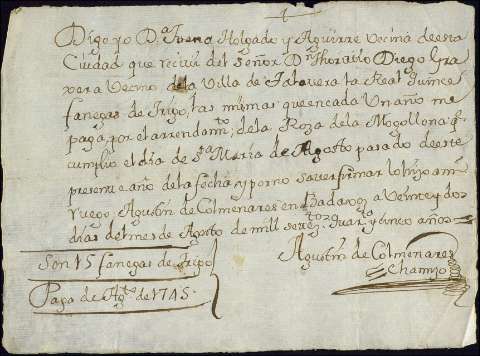 Digo yo D.ª Juana Holgado y Aguirre vecina de esta
Ciudad que recivi del Señor D.n Diego Gra
xera Vecino de la Villa de Talavera la Real quince
fanegas de trigo, las mismas que en cada Un año me
paga, por el arrendam.to de la Roza de la Mogollona q.e
cumplio el dia de S.ta Maria de Agosto pasado de este
presente año de la fecha y por no saver firmar lo hizo a mi
ruego, Agustin de Colmenares en Badaxoz a Veinte y dos
dias del mes de Agosto de mill setez.tos quar.ta y cinco años=
Agustin de Colmenares
Son 15 fanegas de trigo
Paga de Ag.to de 1745